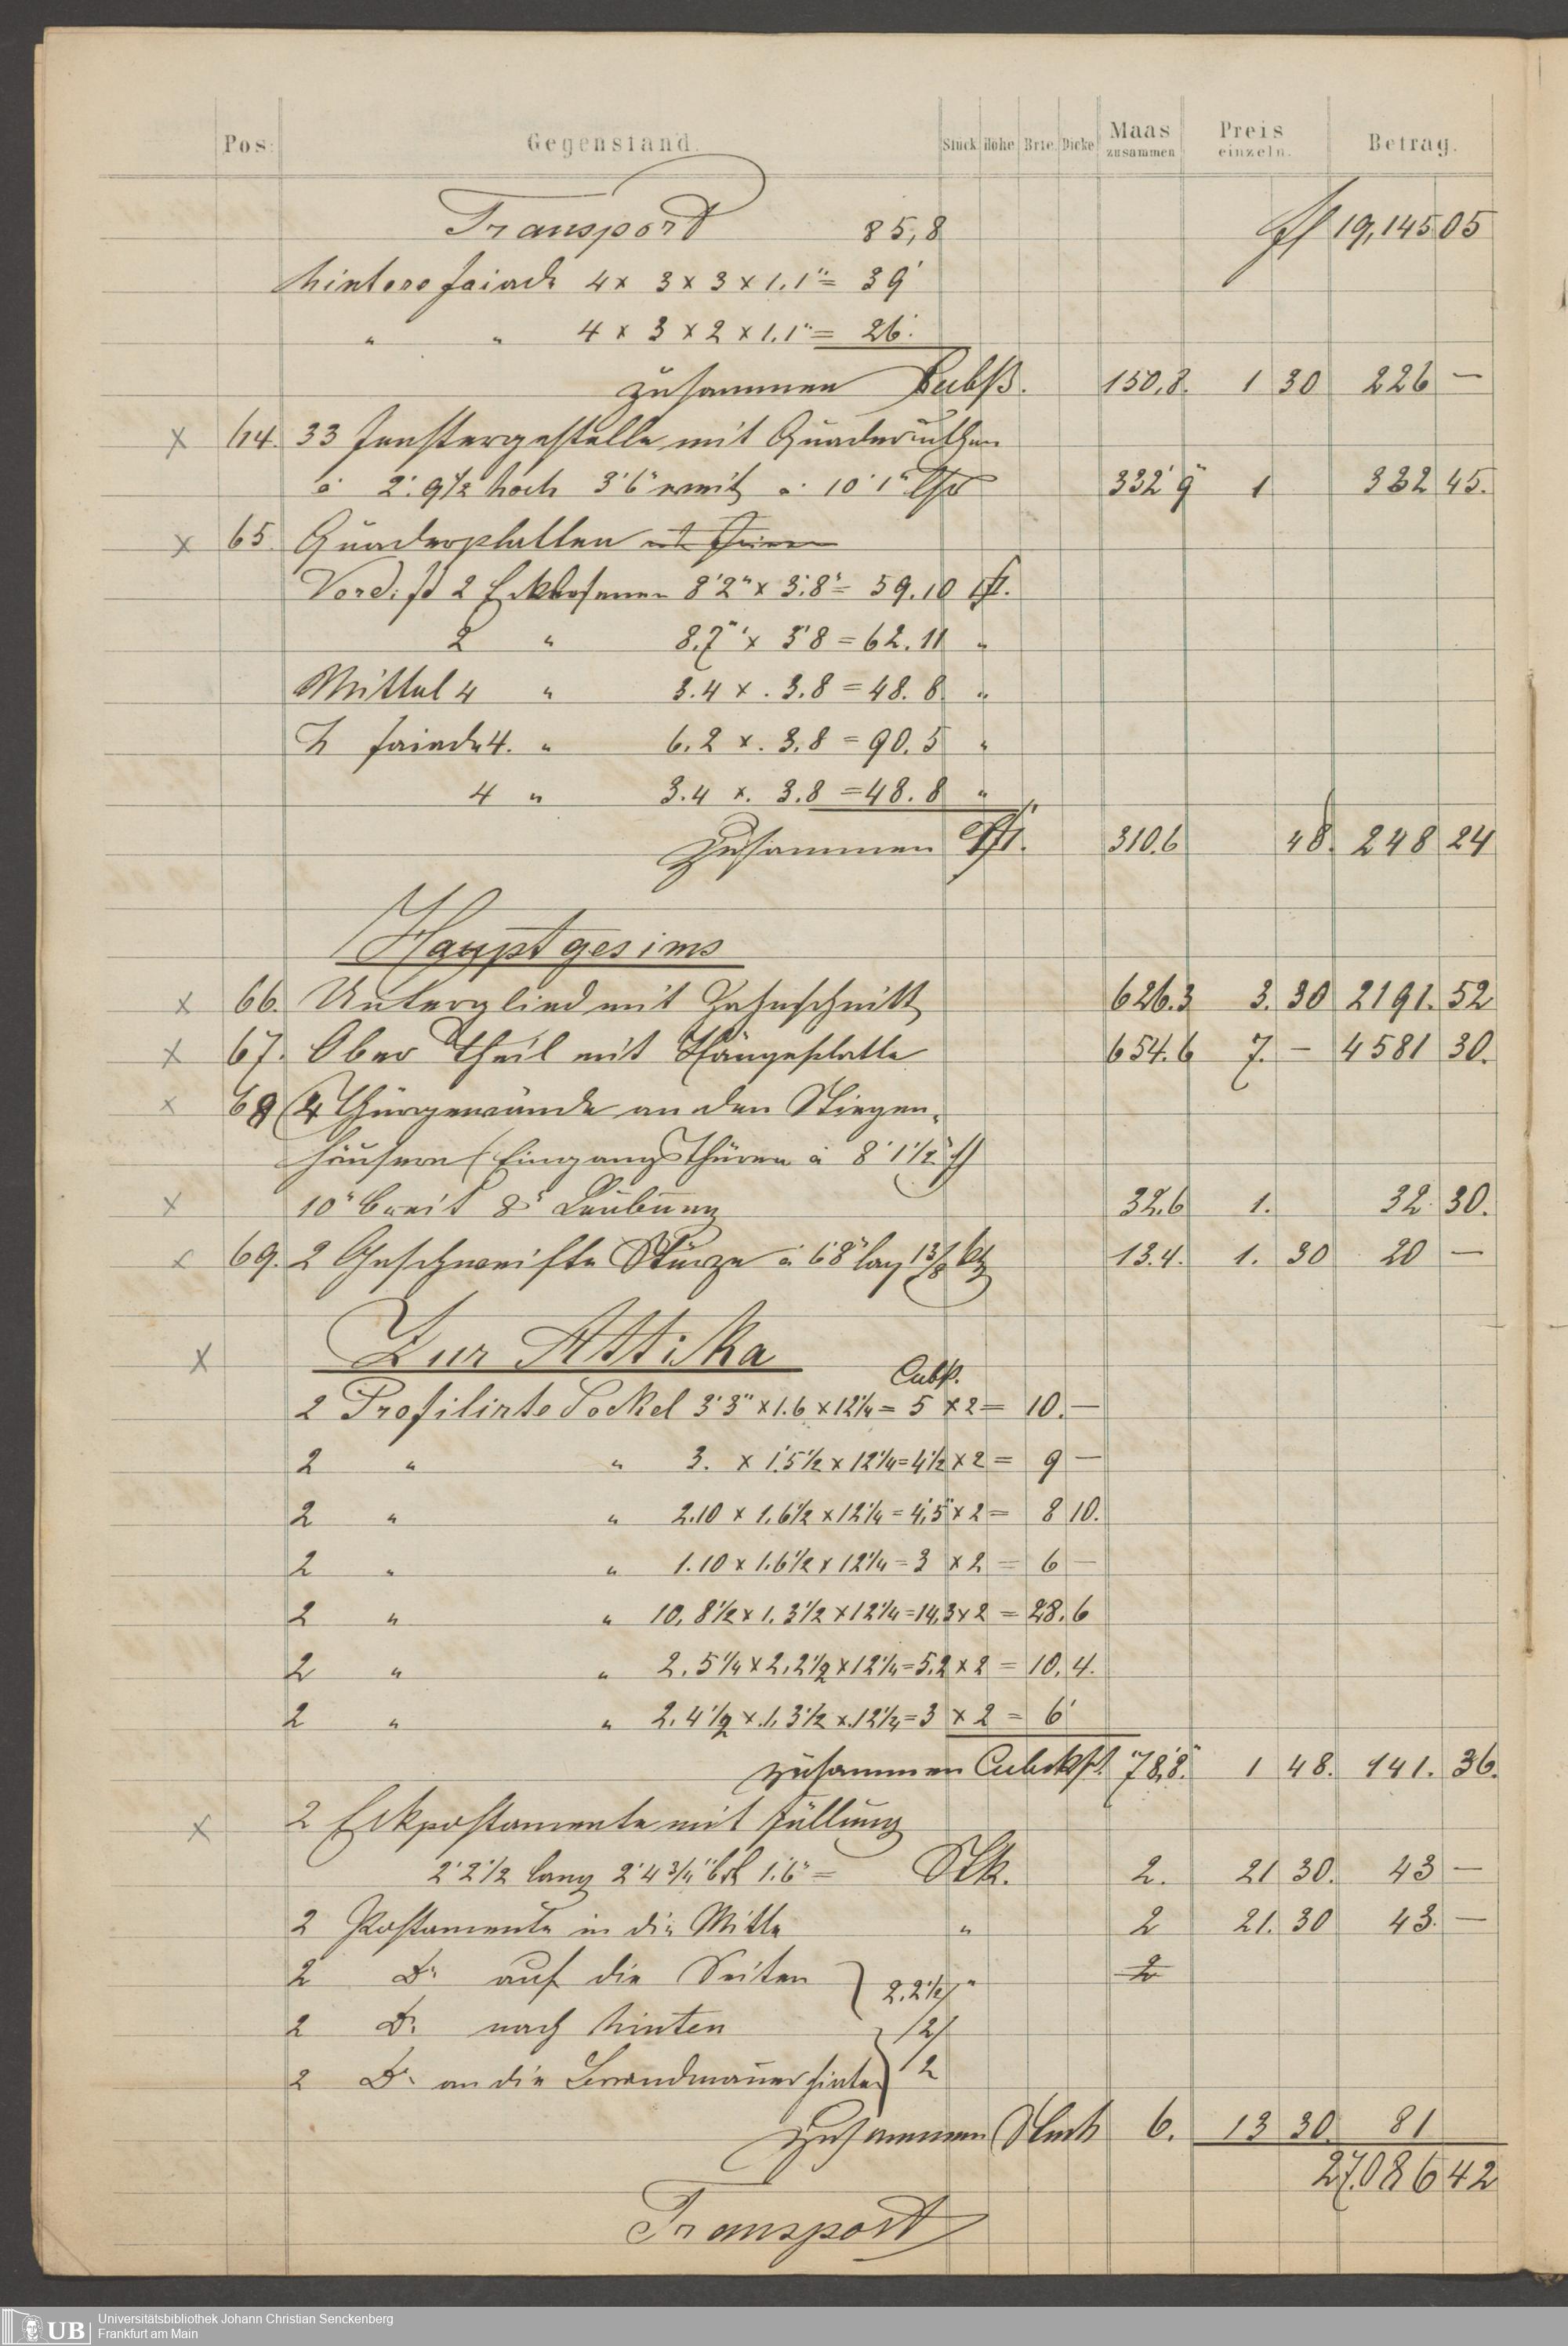 Pos. Gegenstand. Stück Höhe Brte. Dicke Maas zusammen Preis einzeln. Betrag.
Transport 85,8 fl 19,145 05
hintere faiade 4 x 3 x 3 x 1.1" = 39'
" " 4 x 3 x 2 x 1.1" = 26'
zusammen Cubfß. 150,8. 1 30 226 —
x 64. 33 Fenstergestelle mit Quaderuthen
a 2'. 9 1/2 hoch 3'6" weit a 10' 1" 332' 9" 1 332 45.
x 65. Quaderplatten
Vord. 2 Ecklisenen 8'2" x 3'.8" = 59.10 ft.
2 " 8.7" x 3'8 = 62.11 "
Mittel 4 " 3.4 x. 3.8 = 48.8 "
H faiade 4. " 6.2 x. 3.8 = 90.5 "
4 " 3.4 x. 3.8 = 48.8 "
Zusammen ft. 310.6 48. 248 24
Hauptgesims
x 66. Unterglied mit Zahnschnitt 626.3 3. 30 2191. 52
x 67. Ober Theil mit Hängeplatte 654.6 7. — 4581 30.
x 68 4 Thürgewände an den Stiegen-
häusern (Eingangsthüren a 8' 1 1/2"
x 10" breit 8" Leibung 32.6 1. 32. 30.
x 69. 2 Geschweifte Stürze a 6'8" lang 13/8 13.4. 1. 30 20 —
x Zur Attika
Cubf.
2 Profilirte Sockel 3'3" x 1.6 x 12 1/4 = 5 x 2 = 10. —
2 " " 3. x 1.5 1/2 x 12 1/4 = 4 1/2 x 2 = 9 —
2 " " 2.10 x 1.6 1/2 x 12 1/4 = 4,5 x 2 = 8 10.
2 " " 1.10 x 1.6 1/2 x 12 1/4 = 3 x 2 = 6 —
2 " " 10. 8 1/2 x 1. 3 1/2 x 12 1/4 = 14.3 x 2 = 28. 6
2 " " 2. 5 1/4 x 2. 2 1/2 x 12 1/4 = 5.2 x 2 = 10. 4.
2 " " 2. 4 1/2 x. 1. 3 1/2 x. 12 1/4 = 3 x 2 = 6'
zusammen Cubckf. 78'.8". 1 48. 141. 36.
x 2 Eckpostamente mit Füllung
2'2 1/2 lang 2'4 3/4" 1.'6" = Stk. 2. 21 30. 43 —
2 Postamente in die Mitte " 2 21. 30 43. —
2 Do auf die Seiten 2. 2 1/2 " 2
2 Do nach hinten 2
2 Do an die Brandmauer hinten 2
Zusammen Stück 6. 13 30. 81
27.086 42
Transport
UB Universitätsbibliothek Johann Christian Senckenberg
Frankfurt am Main